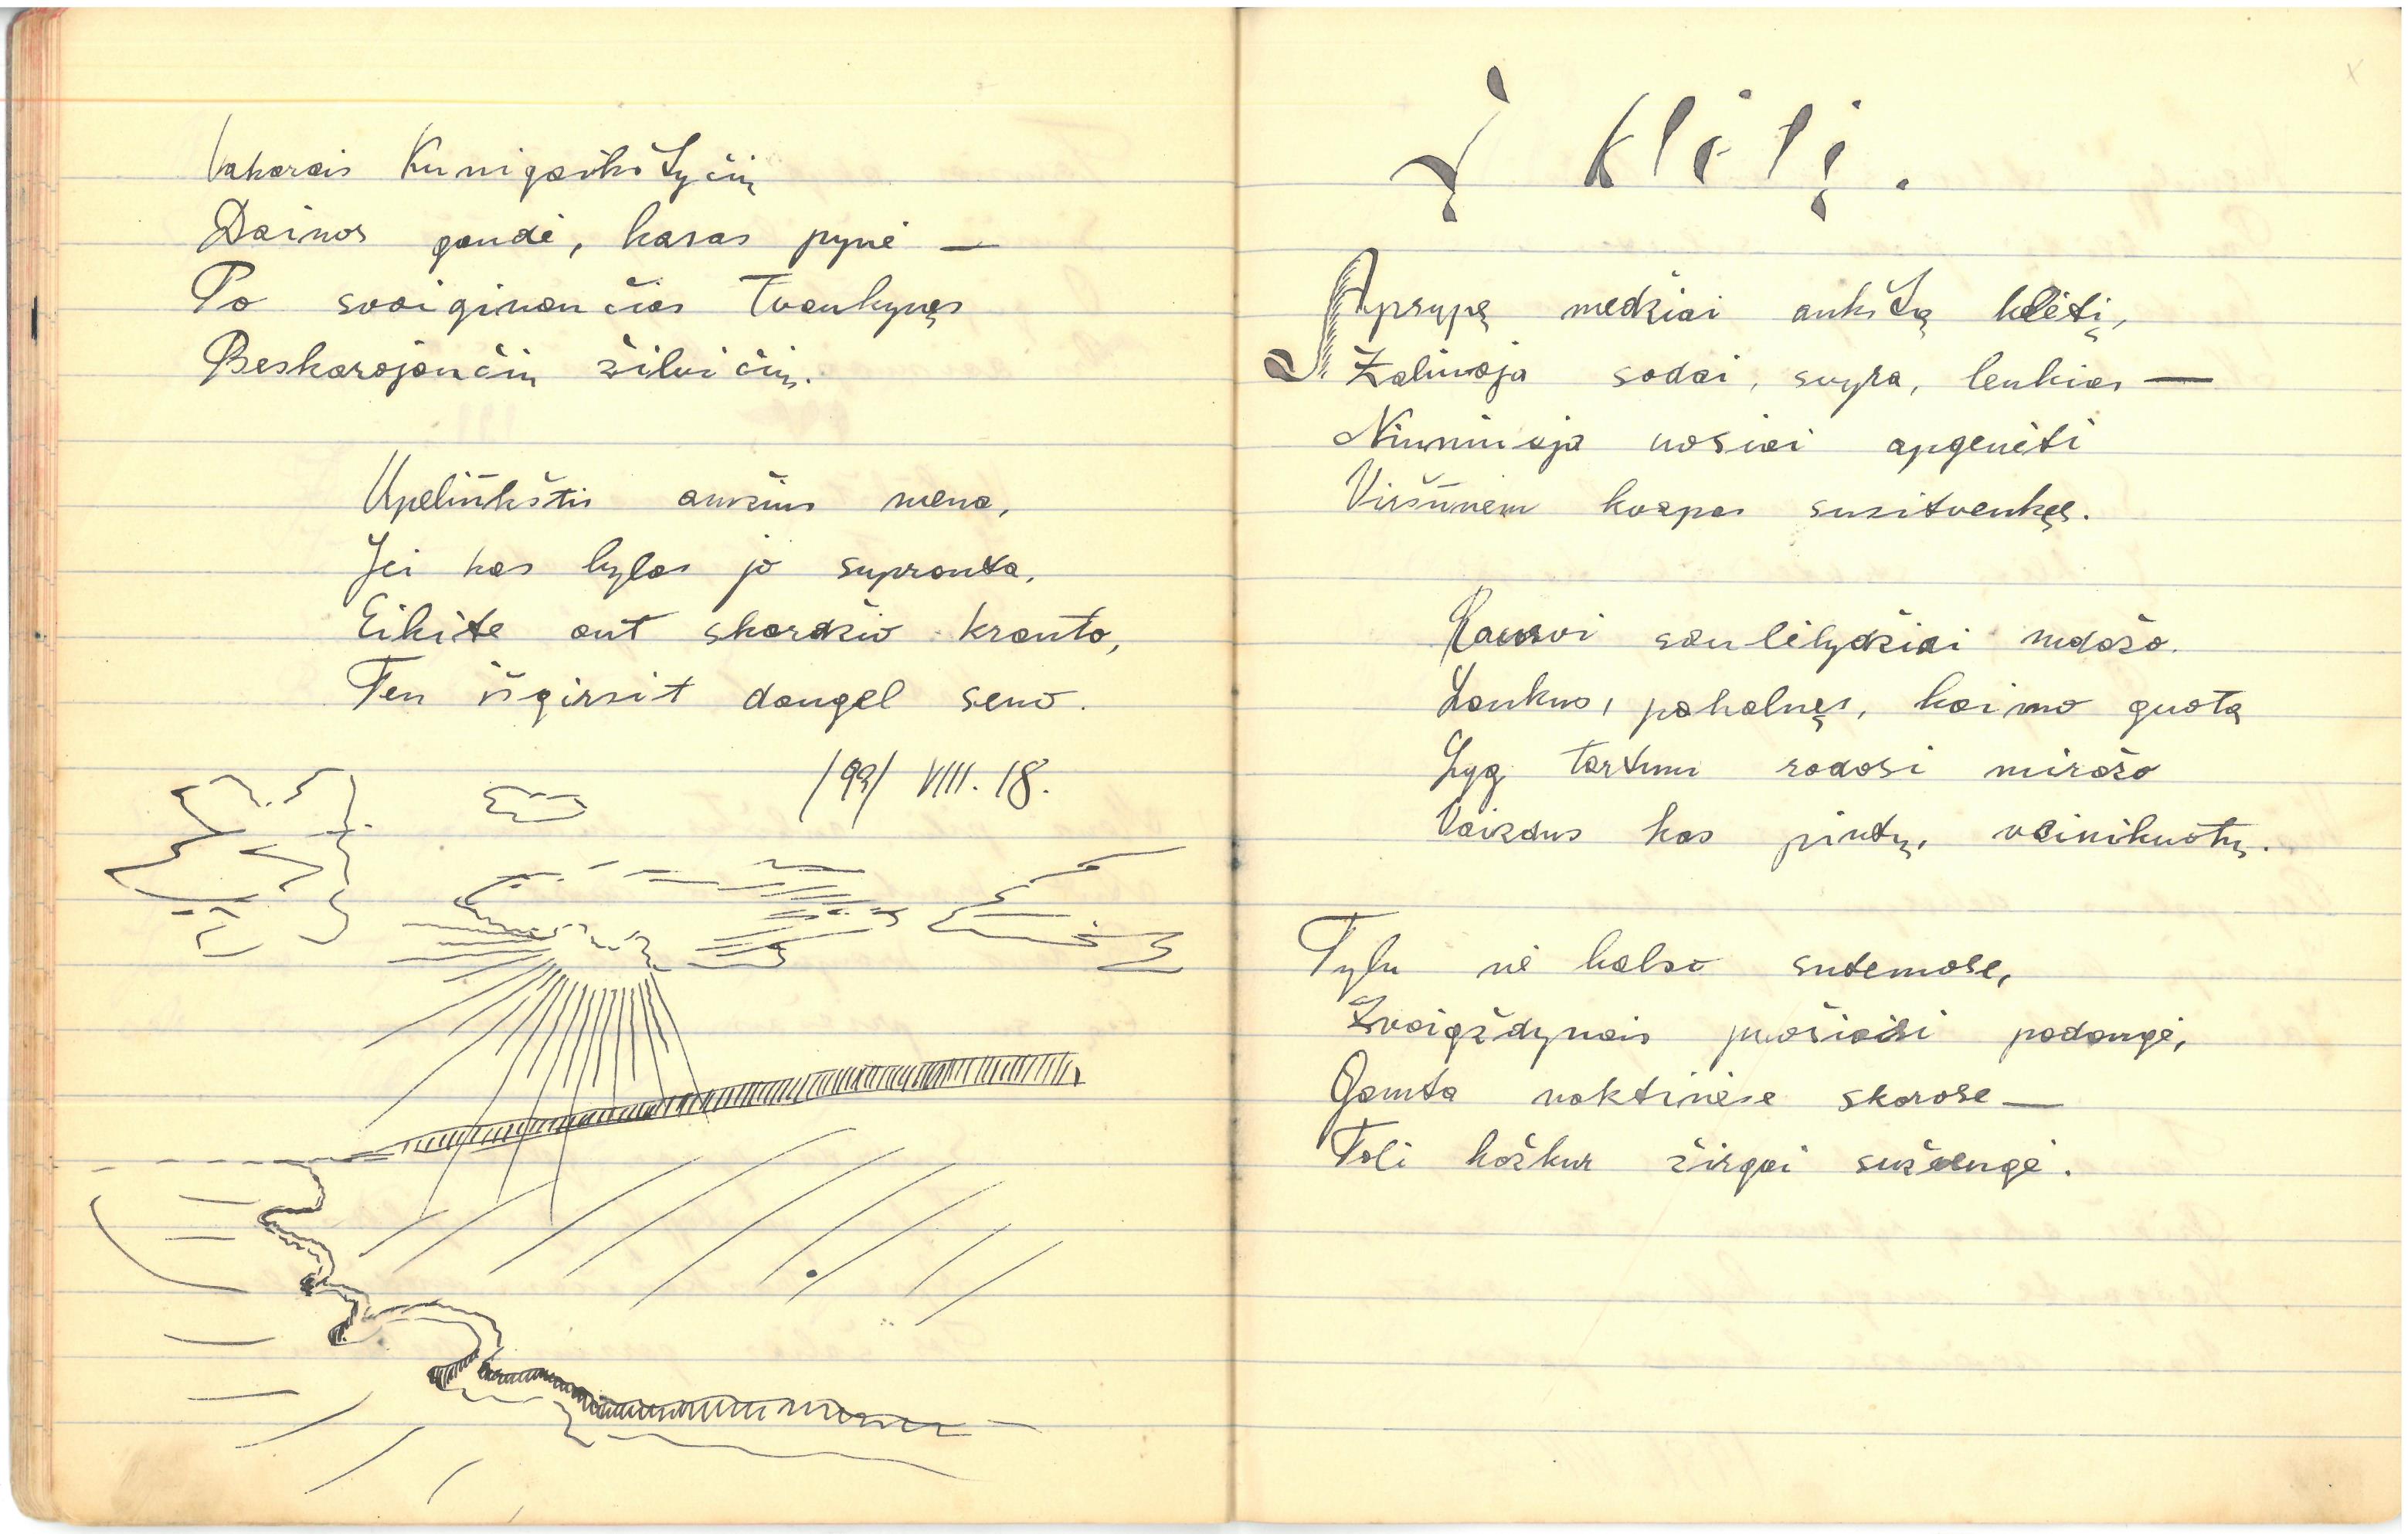 Vakarais Kunigaikštyčių
Dainos gaudė, kasas pynė —
Po svaiginančias tvankynęs
Beskarojančių žilvičių.
Upeliūkštis amžius mena,
Jei kas kylas jo supranta,
Eikite ant skardžio kranto,
Ten išgirsit daugel seno.
1931 VIII. 18.
Į klėtį.
Apsupę medžiai ankštą klėtį,
Žaliuoja sodai, svyra, lenkias —
Niūniuoja uosiai apgenėti
Viršūnėm kvapas susitvenkęs.
Rausvi saulėlydžiai nudažo
Laukus, pakalnęs, kaimo guotą
Lyg tartum rodosi miražo
Vaizdus kas pintų, vainikuotų.
Tylu nė balso sutemose,
Žvaigždynais puošiasi padangė,
Gamta naktinėse skarose —
Toli kažkur žirgai sužvengė.